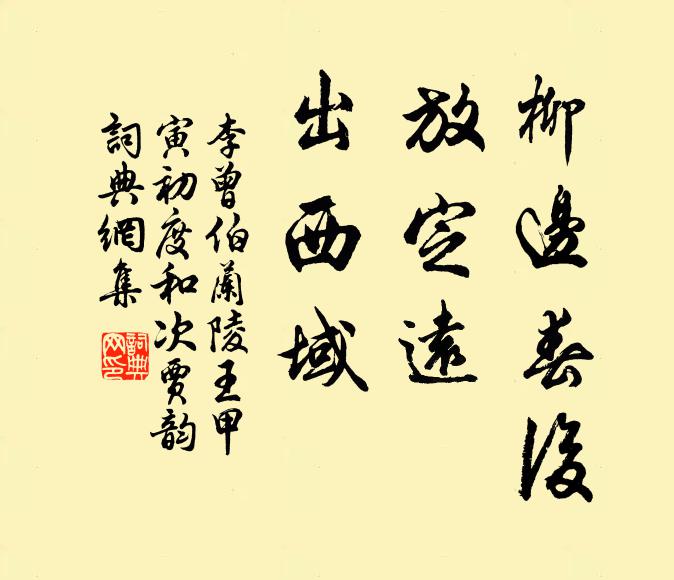 柳邊春後
放定遠
出西域
李曾伯蘭陵王甲
寅初度和次賈韵
詞典網集
詞典网印